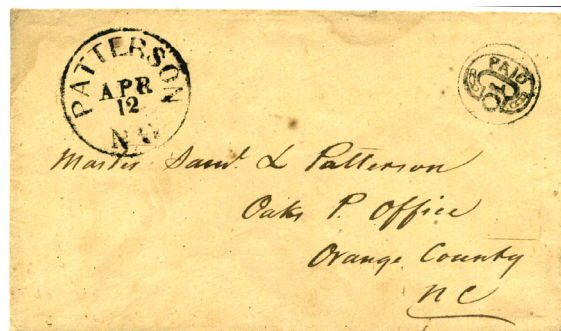 PATTERSON
APR
12
N.C
PAID
Master Saml. L Patterson
Oaks P. Office
Orange County
NC